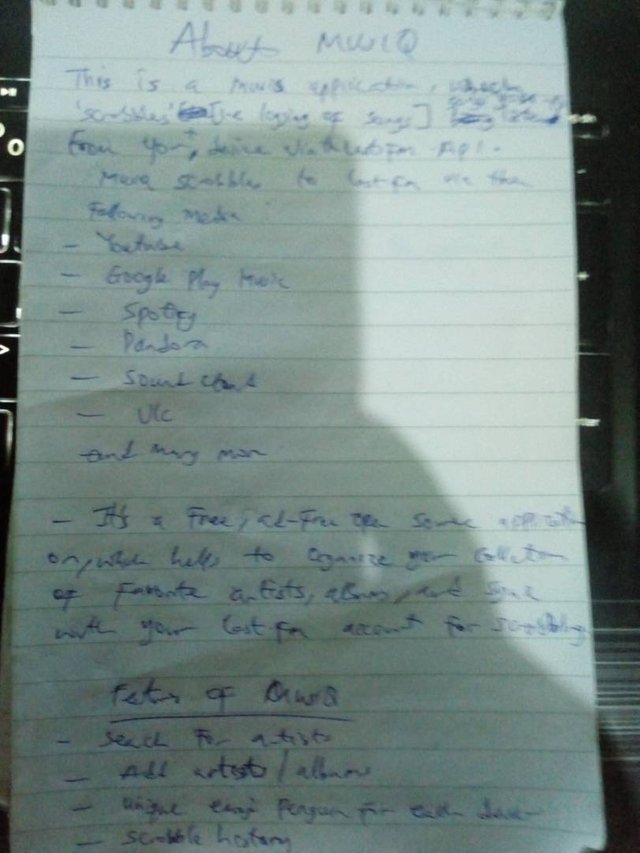 About MWIQ
This is a music application, which
'scrobbles' [the loging of songs]
From your device via last.fm API.
scrobbles to last.fm via the
Following media
- Youtube
- Google Play Music
- Spotify
- Pandora
- Sound cloud
- VLC
and many more
- It's a Free, ad-Free open source applicati
on, which helps to organize your collection
of Favorite artists, albums, and sync
with your last.fm account for scrobbling
of
- Search For artists
- Add artists / albums
- unique for each
- scrobble history